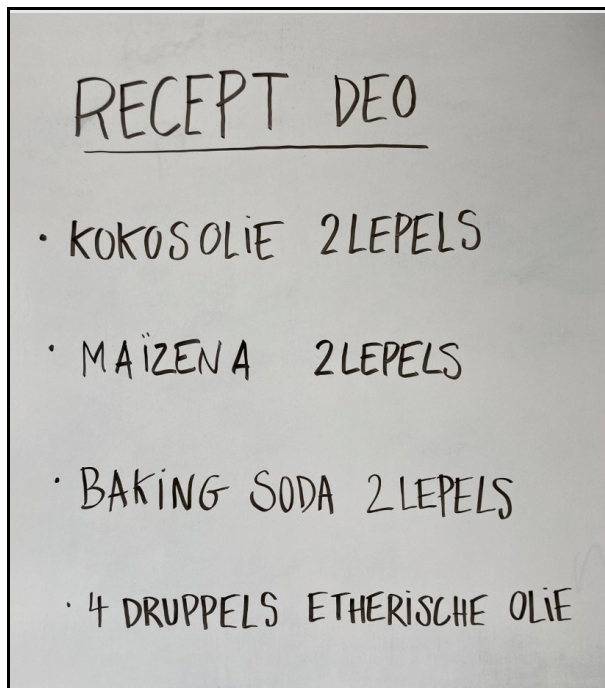 RECEPT DEO
· KOKOSOLIE 2 LEPELS
· MAÏZENA 2 LEPELS
· BAKING SODA 2 LEPELS
· 4 DRUPPELS ETHERISCHE OLIE